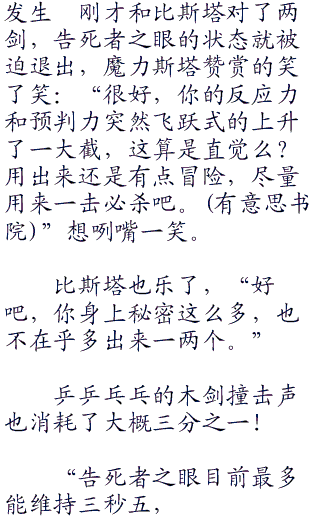 发生　刚才和比斯塔对了两
剑，告死者之眼的状态就被
迫退出，魔力斯塔赞赏的笑
了笑：“很好，你的反应力
和预判力突然飞跃式的上升
了一大截，这算是直觉么？
用出来还是有点冒险，尽量
用来一击必杀吧。(有意思书
院)”想咧嘴一笑。
比斯塔也乐了，“好
吧，你身上秘密这么多，也
不在乎多出来一两个。”
乒乒乓乓的木剑撞击声
也消耗了大概三分之一！
“告死者之眼目前最多
能维持三秒五，